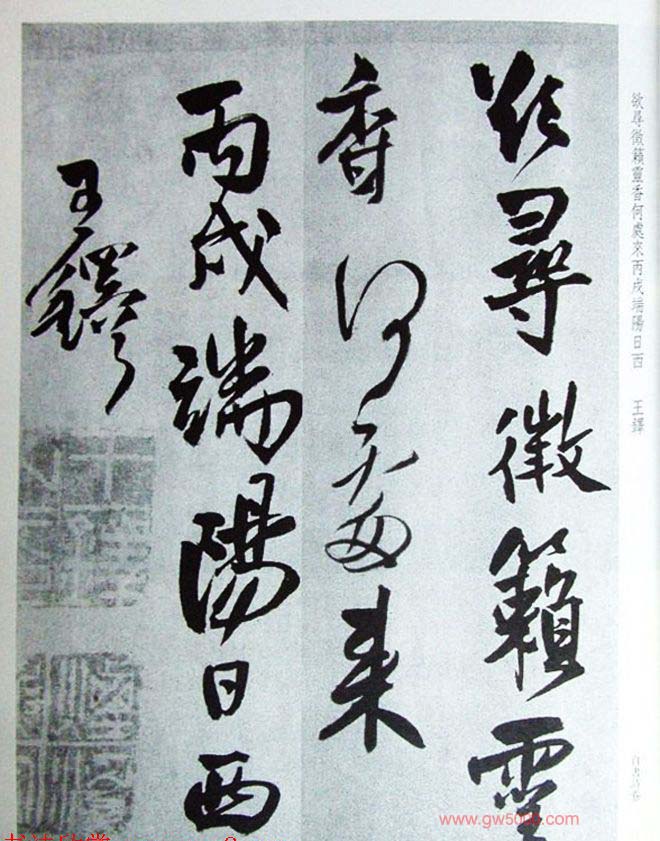 欲尋微籟靈香何處來丙戌端陽日西 王鐸
自書詩卷
欲尋微籟靈
香何處來
丙戌端陽日西
王鐸
www.gw5000.com